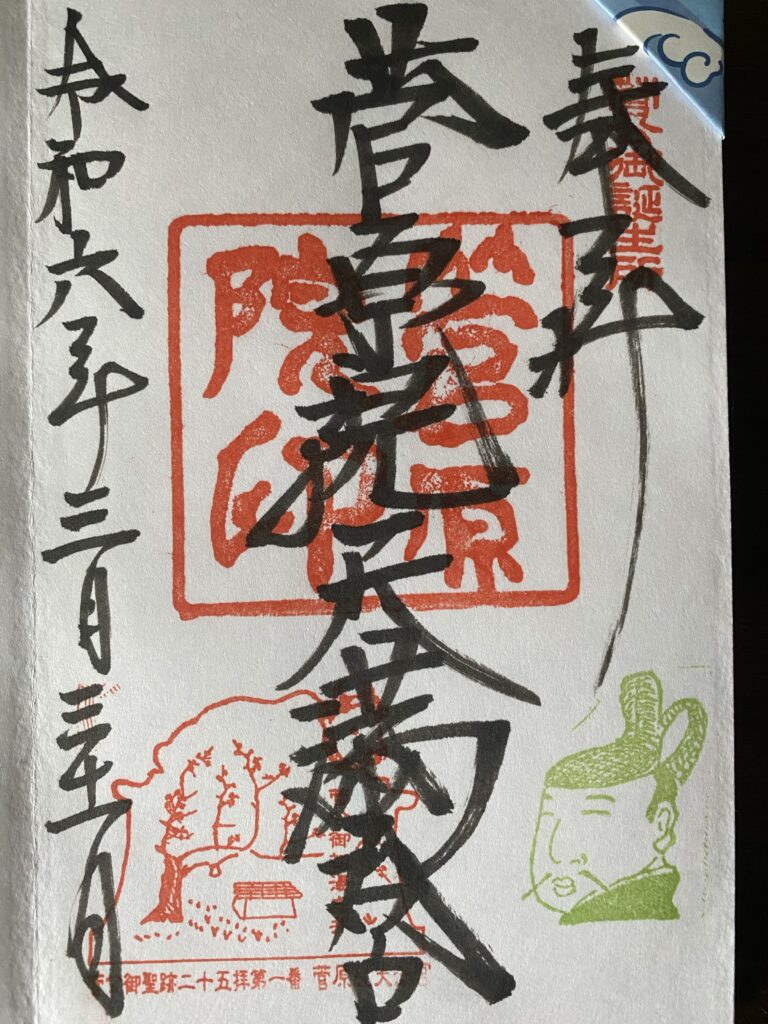 奉拝
菅公御誕生所
菅原院天満宮
菅原院印
令和六年三月三十一日
御聖跡二十五拝第一番 菅原院天満宮